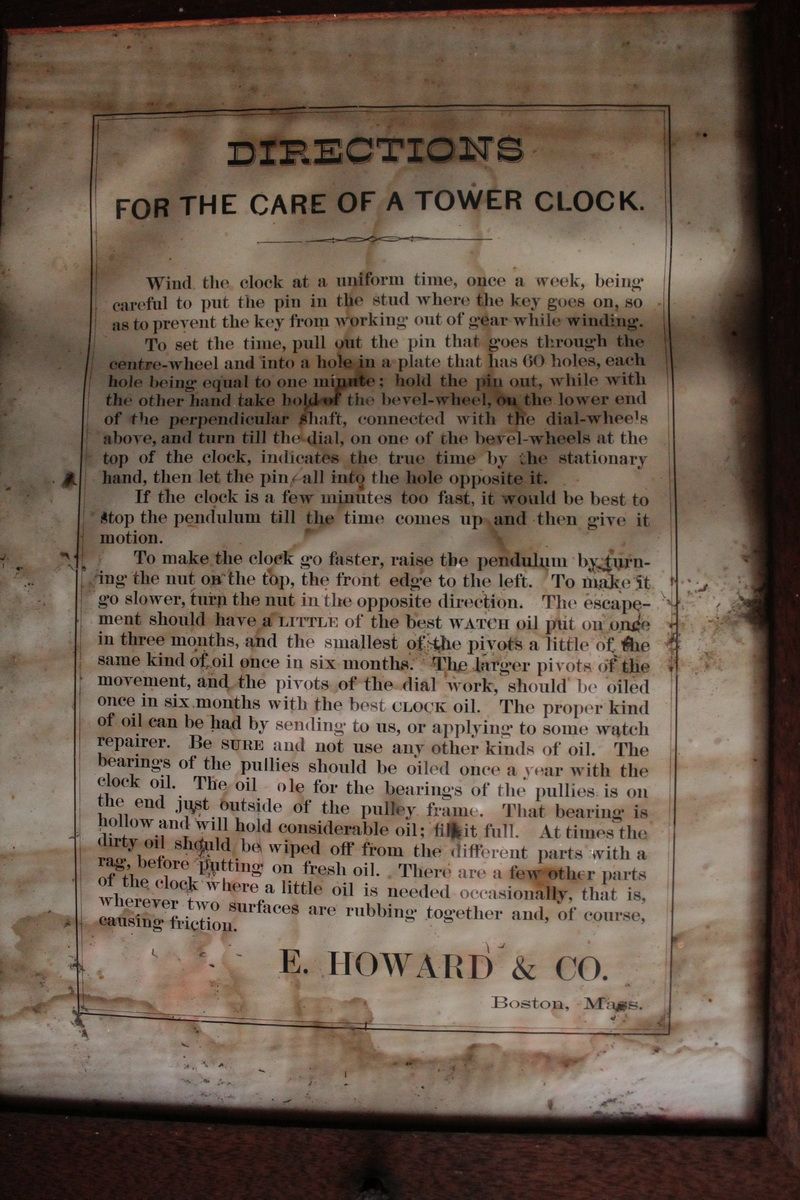 DIRECTIONS
FOR THE CARE OF A TOWER CLOCK.
Wind the clock at a uniform time, once a week, being
careful to put the pin in the stud where the key goes on, so
as to prevent the key from working out of gear while winding.
To set the time, pull out the pin that goes through the
centre-wheel and into a hole in a plate that has 60 holes, each
hole being equal to one minute; hold the pin out, while with
the other hand take hold of the bevel-wheel, on the lower end
of the perpendicular shaft, connected with the dial-wheels
above, and turn till the dial, on one of the bevel-wheels at the
top of the clock, indicates the true time by the stationary
hand, then let the pin fall into the hole opposite it.
If the clock is a few minutes too fast, it would be best to
stop the pendulum till the time comes up and then give it
motion.
To make the clock go faster, raise the pendulum by turn-
ing the nut on the top, the front edge to the left. To make it
go slower, turn the nut in the opposite direction. The escape-
ment should have a LITTLE of the best WATCH oil put on once
in three months, and the smallest of the pivots a little of the
same kind of oil once in six months. The larger pivots of the
movement, and the pivots of the dial work, should be oiled
once in six months with the best CLOCK oil. The proper kind
of oil can be had by sending to us, or applying to some watch
repairer. Be SURE and not use any other kinds of oil. The
bearings of the pullies should be oiled once a year with the
clock oil. The oil ole for the bearings of the pullies is on
the end just outside of the pulley frame. That bearing is
hollow and will hold considerable oil; fill it full. At times the
dirty oil should be wiped off from the different parts with a
rag, before putting on fresh oil. There are a few other parts
of the clock where a little oil is needed occasionally, that is,
wherever two surfaces are rubbing together and, of course,
causing friction.
E. HOWARD & CO.
Boston, Mass.